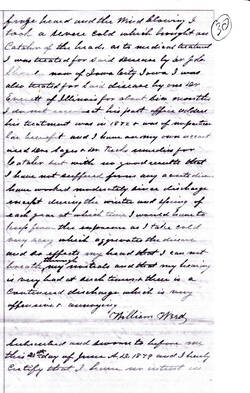 (32)
head and the wind blowing I
took a severe cold which brought on
Catarrh of the head, as to medical treatment
I was treated for said disease by
now of Iowa City Iowa I was
also treated for said disease by one Dr
Everett of Illinois for about six months
I do not his post office address
his treatment was in 1872 & was of
benefit and I have on my own account
used Dr Sages & Dr remedies for
Catarrh but with no good results that
I have not suffered from any
have worked moderately since discharge
except during the winter and spring of
each year at which time I warned have to
keep from the exposure as I take cold
very easy which aggravates the disease
and so effects my head that I can not
breath through my nostrils and that my hearing
is very bad at such times & there is a
continued discharge which is very
offensive & annoying
William Wird
Subscribed and sworn to before me
this 21th day of June A.D. 1879 and I hereby
Certify that I have no interest in